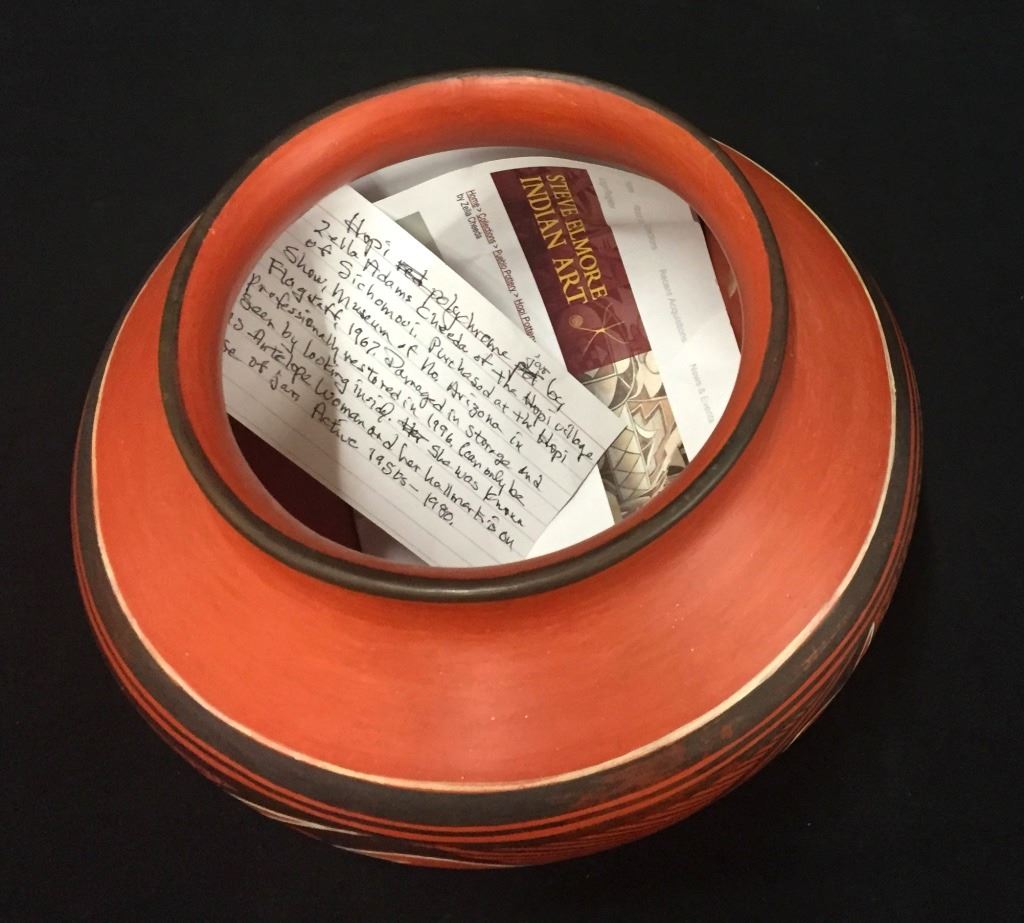 Hopi polychrome jar by
Zella Adams Cheeda of the Hopi village
of Sichomovi. Purchased at the Hopi
Show, Museum of No. Arizona in
Flagstaff 1967. Damaged in storage and
professionally restored in 1996. Can only be
seen by looking inside. She was known
as Antelope Woman and her hallmark is on
se of jar. Active 1950s - 1980.
STEVE ELMORE
INDIAN ART
Home > Collections > Pueblo Pottery > Hopi Potter
by Zella Cheeda
Recent Acquisitions
News & Events